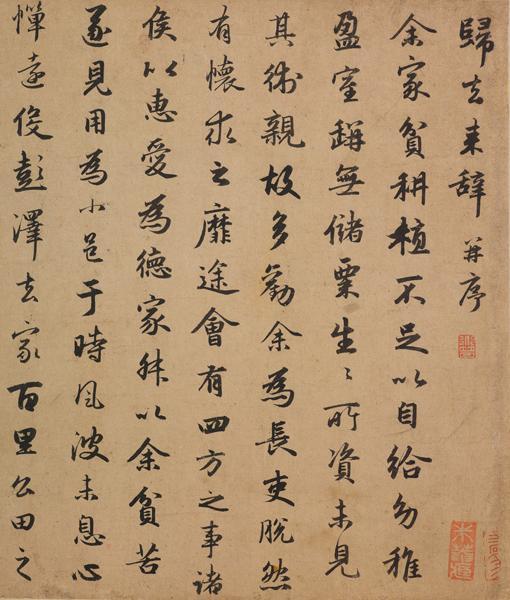 歸去来辝 并序
余家貧耕植不足以自給幼稚
盈室缾無儲粟生〻所資未見
其術親故多勸余為長吏脱然
有懷求之靡途會有四方之事諸
侯以惠愛為德家叔以余貧苦
遂見用為小邑于時風波未息心
憚遠役彭澤去家百里公田之